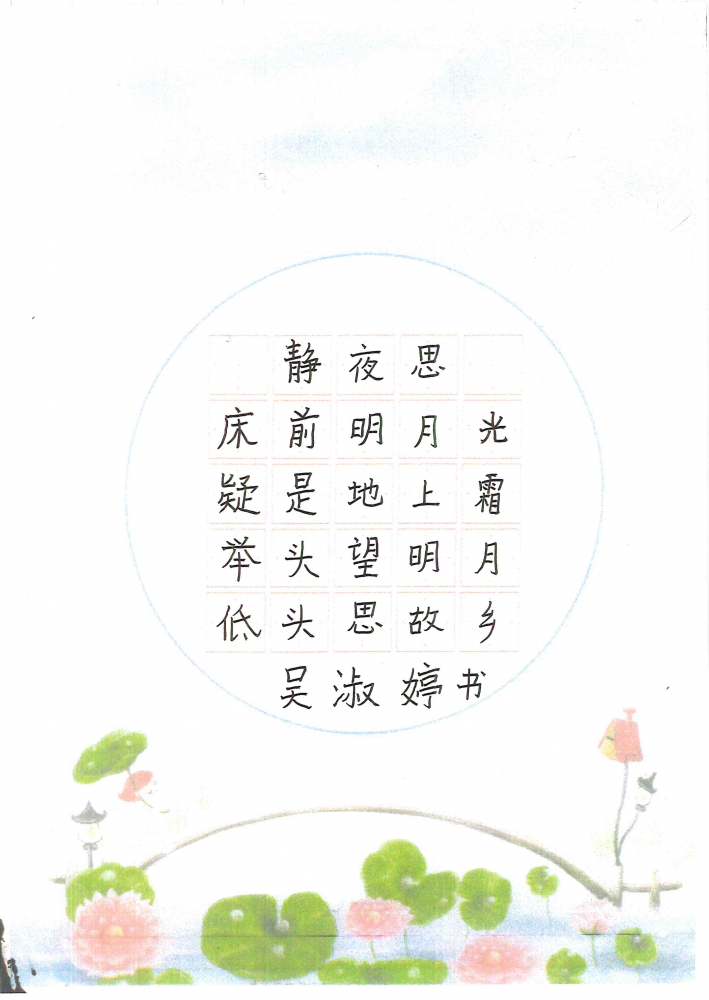 静夜思
床前明月光
疑是地上霜
举头望明月
低头思故乡
吴淑婷书